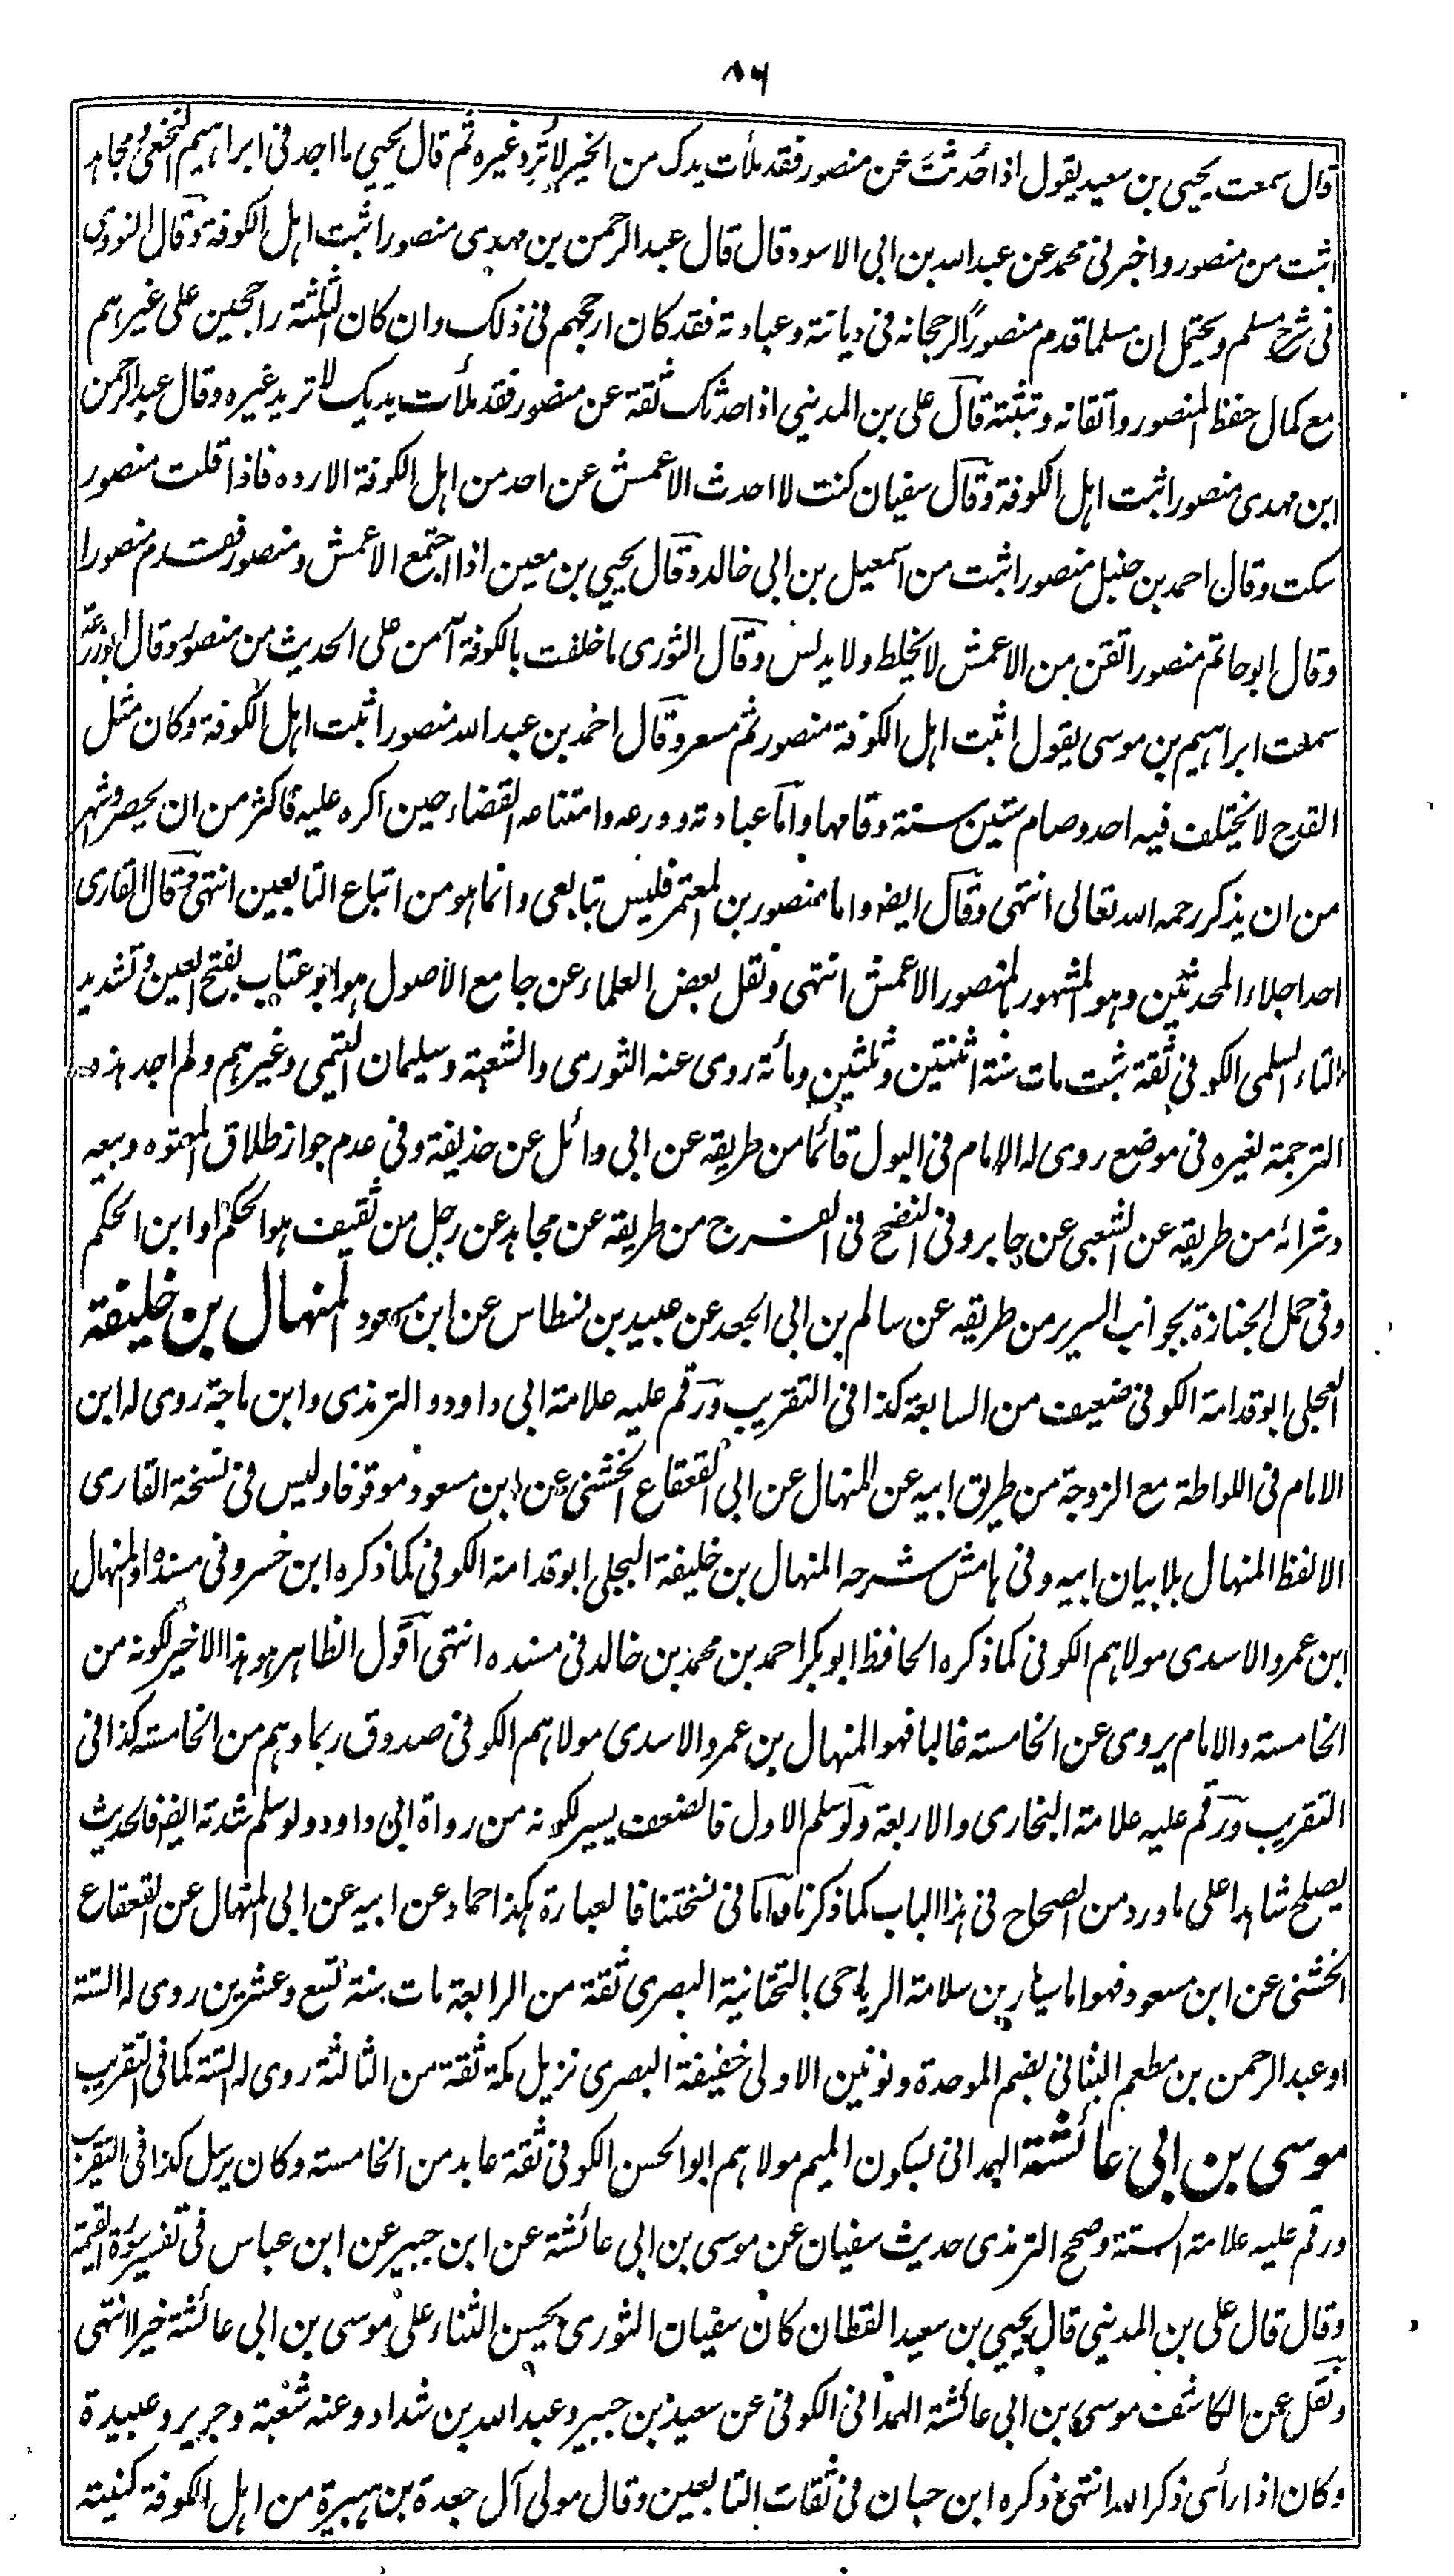 ٨٦
قال سمعت يحيى بن سعيد يقول اذا حُدثتَ عن منصور فقد ملأت يدك من الخير لا تُرِد غيره ثم قال يحيى ما اجد فى ابراهيم النخعى ومجاهد
اثبت من منصور واخبرنى محمد عن عبدالله بن ابى الاسود قال قال عبدالرحمن بن مهدى منصور اثبت اهل الكوفة وقال النووى
فى شرح مسلم ويحتمل ان مسلما قدم منصوراً لرجحانه فى ديانته وعبادته فقد كان ارجحهم فى ذلك وان كان الثلثة راجحين على غيرهم
مع كمال حفظ المنصور واتقانه وتثبته قال على بن المدينى اذا حدثك ثقة عن منصور فقد ملأت يديك لا تريد غيره وقال عبدالرحمن
ابن مهدى منصور اثبت اهل الكوفة وقال سفيان كنت لا احدث الاعمش عن احد من اهل الكوفة الا رده فاذا قلت منصور
سكت وقال احمد بن حنبل منصور اثبت من اسمعيل بن ابى خالد وقال يحيى بن معين اذا اجتمع الاعمش ومنصور فقدم منصورا
وقال ابو حاتم منصور اتقن من الاعمش لا يخلط ولا يدلس وقال الثورى ما خلفت بالكوفة آمن على الحديث من منصور وقال ابو زرعة
سمعت ابراهيم بن موسى يقول اثبت اهل الكوفة منصور ثم مسعر وقال احمد بن عبدالله منصور اثبت اهل الكوفة وكان مثل
القدح لا يختلف فيه احد وصام ستين سنة وقامها واما عبادته وورعه وامتناعه القضاء حين اكره عليه فاكثر من ان يحصر واشهر
من ان يذكر رحمه الله تعالى انتهى وقال ايضا واما منصور بن المعتمر فليس تابعى وانما هو من اتباع التابعين انتهى وقال القارى
احد اجلاء المحدثين وهو المشهور بالمنصور الاعمش انتهى ونقل بعض العلماء عن جامع الأصول هو ابو عتاب بفتح العين وتشديد
التاء السلمى الكوفى ثقة ثبت مات سنة اثنتين وثلثين ومأئة روى عنه الثورى والشعبة وسليمان التيمى وغيرهم ولم اجد هذه
الترجمة لغيره فى موضع روى له الامام فى البول قائما من طريقه عن ابى وائل عن حذيفة وفى عدم جواز طلاق المعتوه وبيعه
وشرائه من طريقه عن الشعبى عن جابر وفى النضح فى الفرج من طريقه عن مجاهد عن رجل من ثقيف هو الحكم او ابن الحكم
وفى حمل الجنازة بجوانب السرير من طريقه عن سالم بن ابى الجعد عن عبيد بن نسطاس عن ابن مسعود المنهال بن خليفة
العجلى ابو قدامة الكوفى ضعيف من السابعة كذا فى التقريب ورقم عليه علامة ابى داود والترمذى وابن ماجة روى له ابن
الامام فى اللواطة مع الزوجة من طريق ابيه عن المنهال عن ابى القعقاع الخشنى عن ابن مسعود موقوفا وليس فى نسخة القارى
الا لفظ المنهال بلا بيان ابيه وفى هامش شرحه المنهال بن خليفة البجلى ابو قدامة الكوفى كما ذكره ابن خسرو فى مسنده او المنهال
ابن عمرو الاسدى مولاهم الكوفى كما ذكره الحافظ ابو بكر احمد بن محمد بن خالد فى مسنده انتهى اقول الظاهر هو هذا الاخير لكونه من
الخامسة والامام يروى عن الخامسة غالبا فهو المنهال بن عمرو الاسدى مولاهم الكوفى صدوق ربما وهم من الخامسة كذا فى
التقريب ورقم عليه علامة البخارى والاربعة ولو سلم الاول فالضعف يسير لكونه من رواة ابى داود ولو سلم شدته ايضا فالحديث
يصلح شاهدا على ما ورد من الصحاح فى هذا الباب كما ذكرناه واما فى نسختنا فالعبارة هكذا حماد عن ابيه عن ابى المنهال عن القعقاع
الخشنى عن ابن مسعود فهو اما سيار بن سلامة الرياحى بالتحتانية البصرى ثقة من الرابعة مات سنة تسع وعشرين روى له الستة
او عبدالرحمن بن مطعم البنانى بضم الموحدة ونونين الاولى خفيفة البصرى نزيل مكة ثقة من الثالثة روى له الستة كما فى التقريب
موسى بن ابى عائشة الهمدانى بسكون الميم مولاهم ابو الحسن الكوفى ثقة عابد من الخامسة وكان يرسل كذا فى التقريب
ورقم عليه علامة الستة وصحح الترمذى حديث سفيان عن موسى بن ابى عائشة عن ابن جبير عن ابن عباس فى تفسير سورة القيمة
وقال قال على بن المدينى قال يحيى بن سعيد القطان كان سفيان الثورى يحسن الثناء على موسى بن ابى عائشة خيرا انتهى
ونقل عن الكاشف موسى بن ابى عائشة الهمدانى الكوفى عن سعيد بن جبير وعبدالله بن شداد وعنه شعبة وجرير وعبيدة
وكان اذا رأى ذكر الله انتهى ذكره ابن حبان فى ثقات التابعين وقال مولى آل جعدة بن هبيرة من اهل الكوفة كنيته